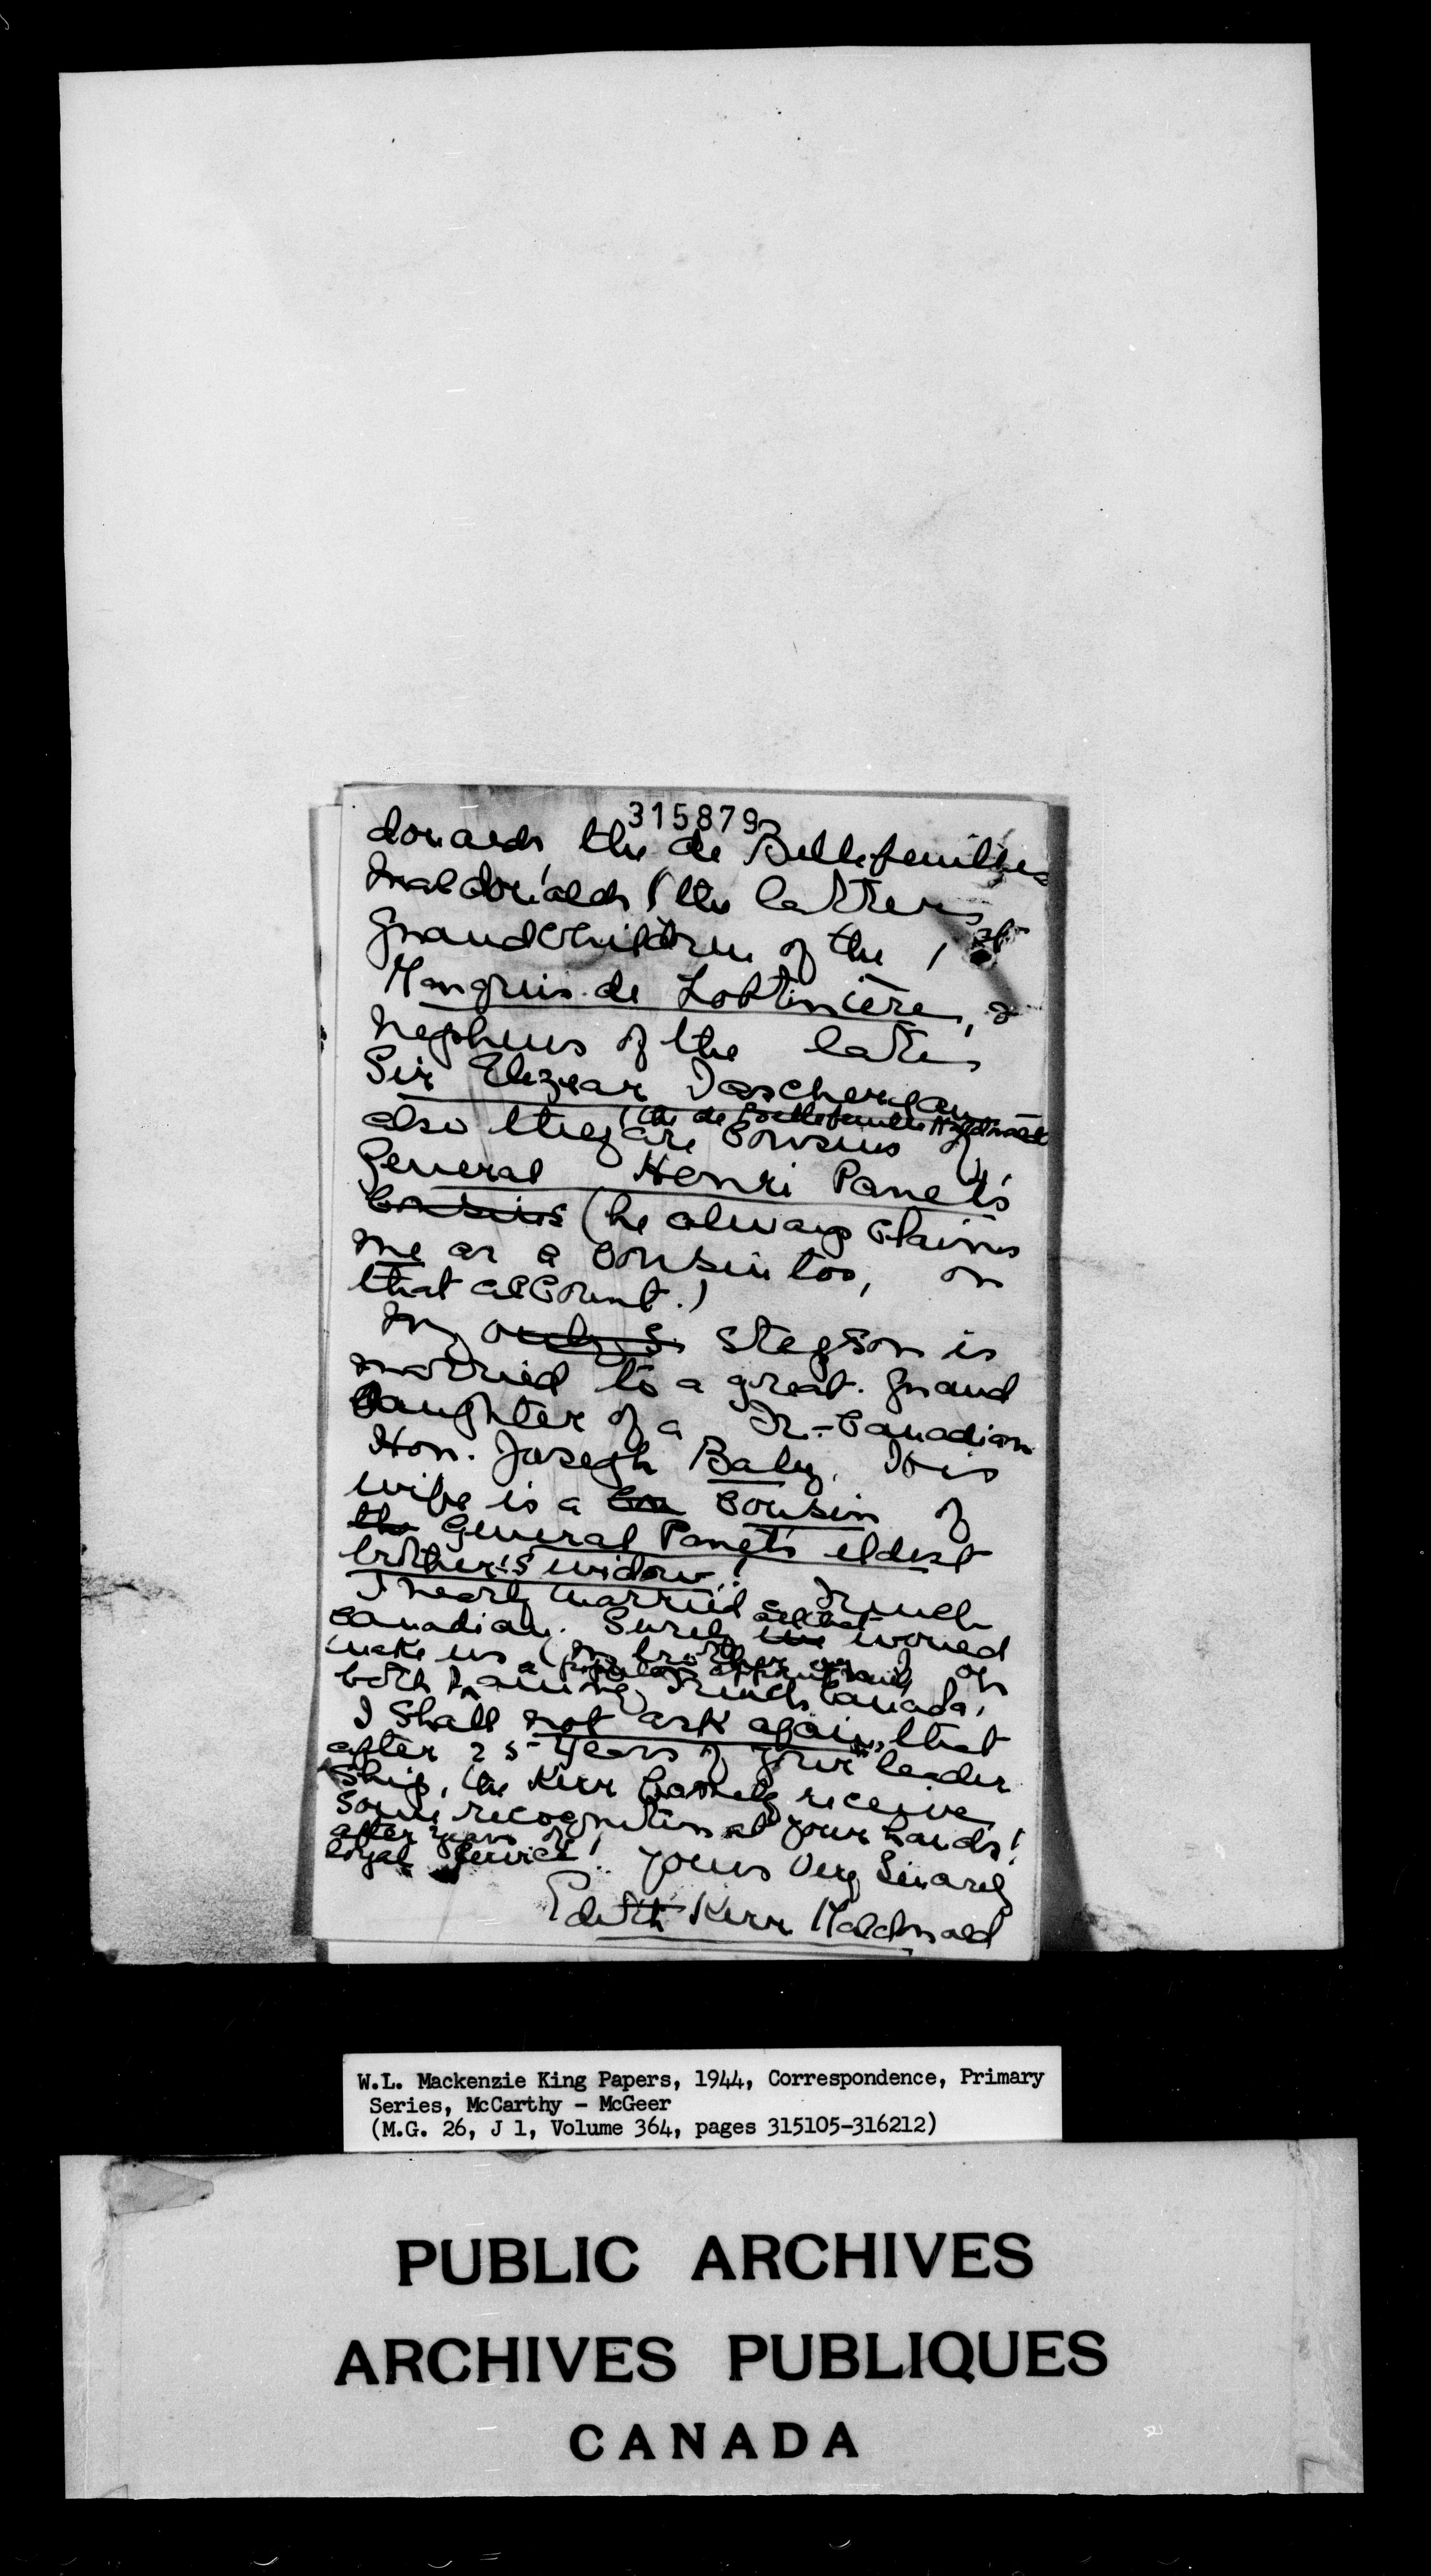 315879
donalds the de Bellefeuilles
Macdonalds (the latter
grandchildren of the 1st
Marquis de Lotbiniere, &
nephews of the late
Sir Elzear Taschereau
(the de Bellefeuille Macdonalds)
also they are cousins of
General Henri Panet's
cousins (he always claims
me as a cousin too, on
that account.)
My only S. stepson is
married to a great. grand
daughter of a Fr-Canadian
Hon. Joseph Baby. His
wife is a cou cousin of
the General Panet's eldest
brother's widow!
I nearly married a French
Canadian. Surely all that would
make us (my brother and I) or
both a popular appointment
among French Canada!
I shall not ask again, that
after 25 years of your leader
ship, the Kerr family receive
some recognition at your hands!
after years of
loyal service! Yours very sincerely
Edith Kerr Macdonald
W.L. Mackenzie King Papers, 1944, Correspondence, Primary
Series, McCarthy - McGeer
(M.G. 26, J 1, Volume 364, pages 315105-316212)
PUBLIC ARCHIVES
ARCHIVES PUBLIQUES
CANADA